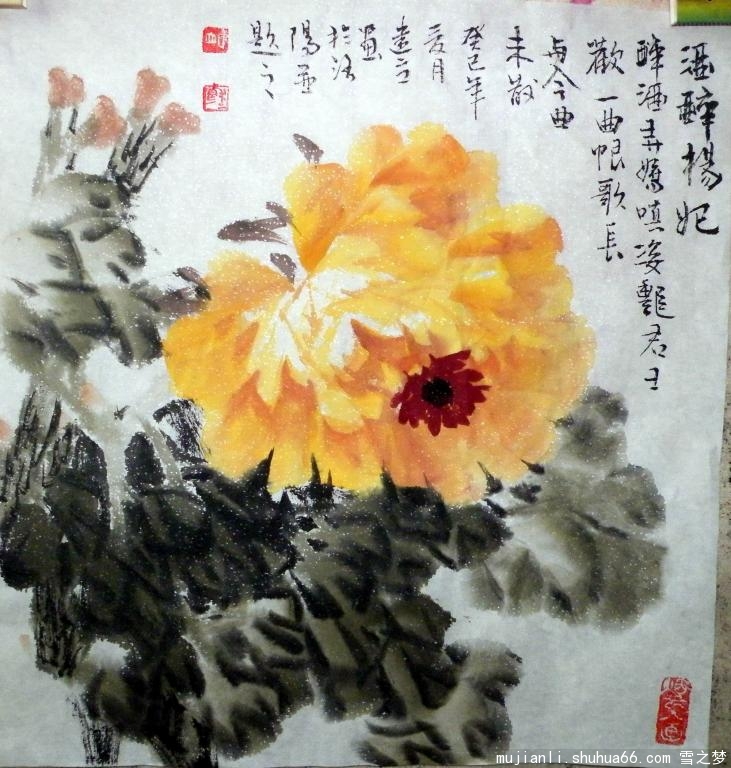 酒醉楊妃
醉酒弄嬌嗔姿艷君王
歡一曲恨歌長
与今曲
未散
癸巳年
夏月
建立
画
於洛
陽並
題之
mujianli.shuhua66.com 雪之梦